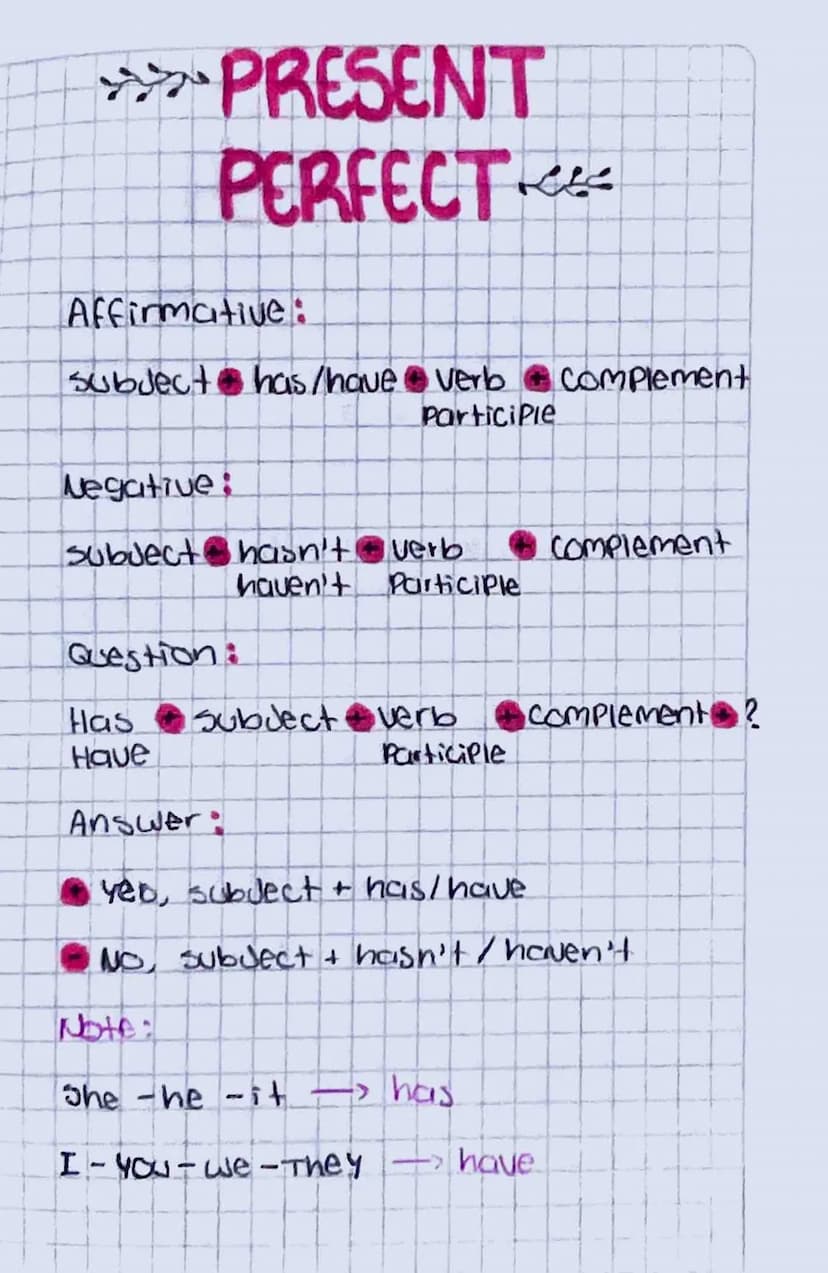 PRESENT
PERFECT
Affirmative:
subject + has/have + verb + complement
participle
Negative:
subject + hasn't + verb + complement
haven't participle
Question:
Has + subject + verb + complement + ?
Have participle
Answer:
+ Yes, subject + has/have
- No, subject + hasn't/haven't
Note:
She - he - it → has
I - you - we - They → have